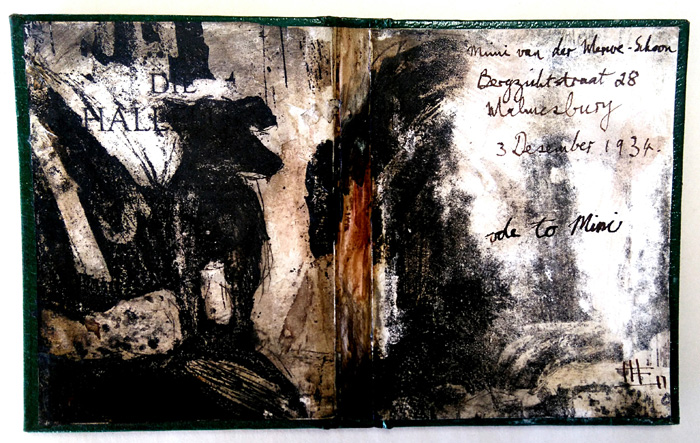 DIE
HALL
Mimi van der Merwe-Schoon
Bergzichtstraat 28
Malmesbury
3 Desember 1934.
ode to Mimi